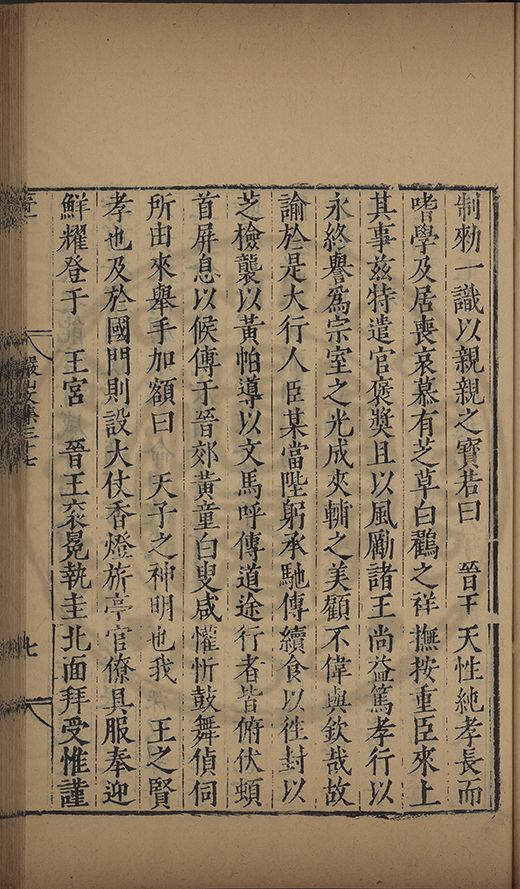 制勑一識以親親之寳若曰　晉王天性純孝長而
嗜學及居喪哀慕有芝草白鸛之祥撫按重臣來上
其事兹特遣官褒奬且以風勵諸王尚益篤孝行以
永終譽爲宗室之光成夾輔之美顧不偉與欽哉故
諭於是大行人臣某當陛躬承馳傳續食以徃封以
芝檢襲以黃帕導以文馬呼傳道途行者皆俯伏頓
首屏息以候傳于晉郊黃童白叟咸懽忻鼓舞偵伺
所由來舉手加額曰　天子之神明也我　王之賢
孝也及於國門則設大仗香燈旂亭官僚具服奉迎
鮮耀登于　王宮　晉王衮冕執圭北面拜受惟謹
嚴山文集三七
七